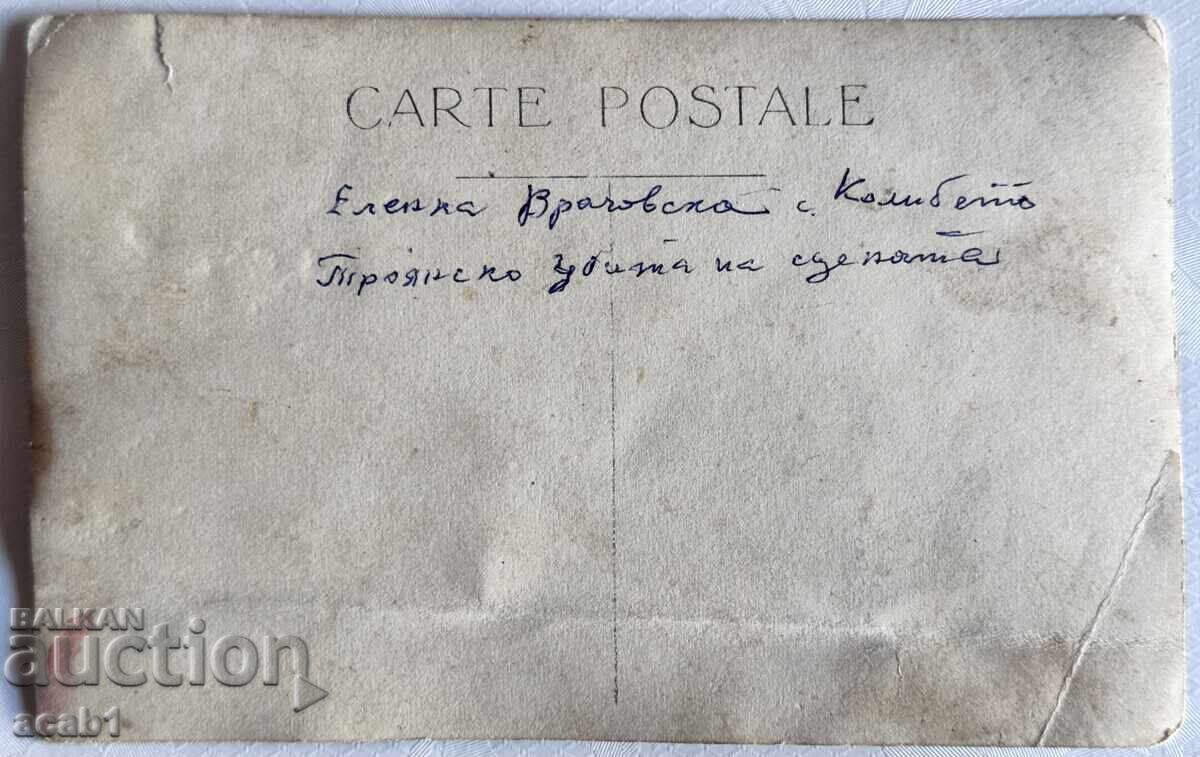 CARTE POSTALE
Еленка Врачовска с. Колибето
Троянско убита на сцената
BALKAN
auction
acab1